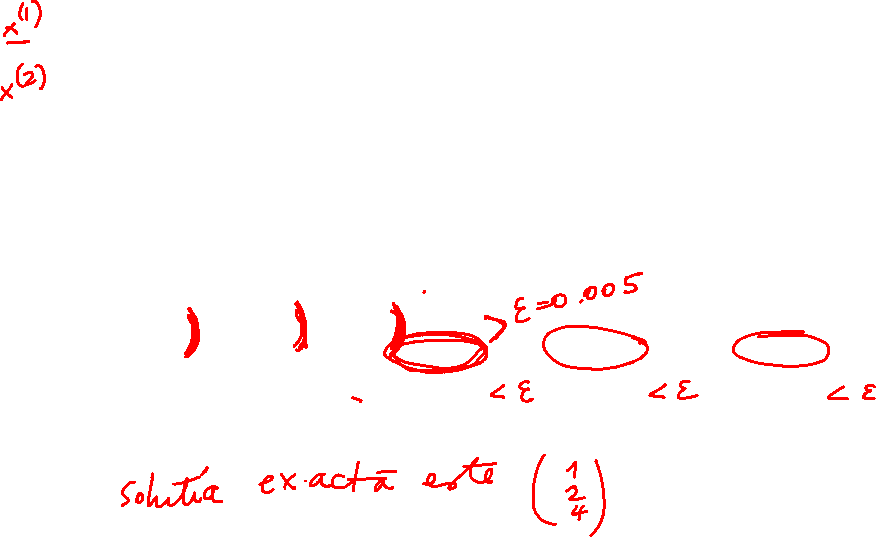 x^(1)
x^(2)
) ) ) > ε=0.005
< ε < ε < ε
soluția exactă este (1 2 4)